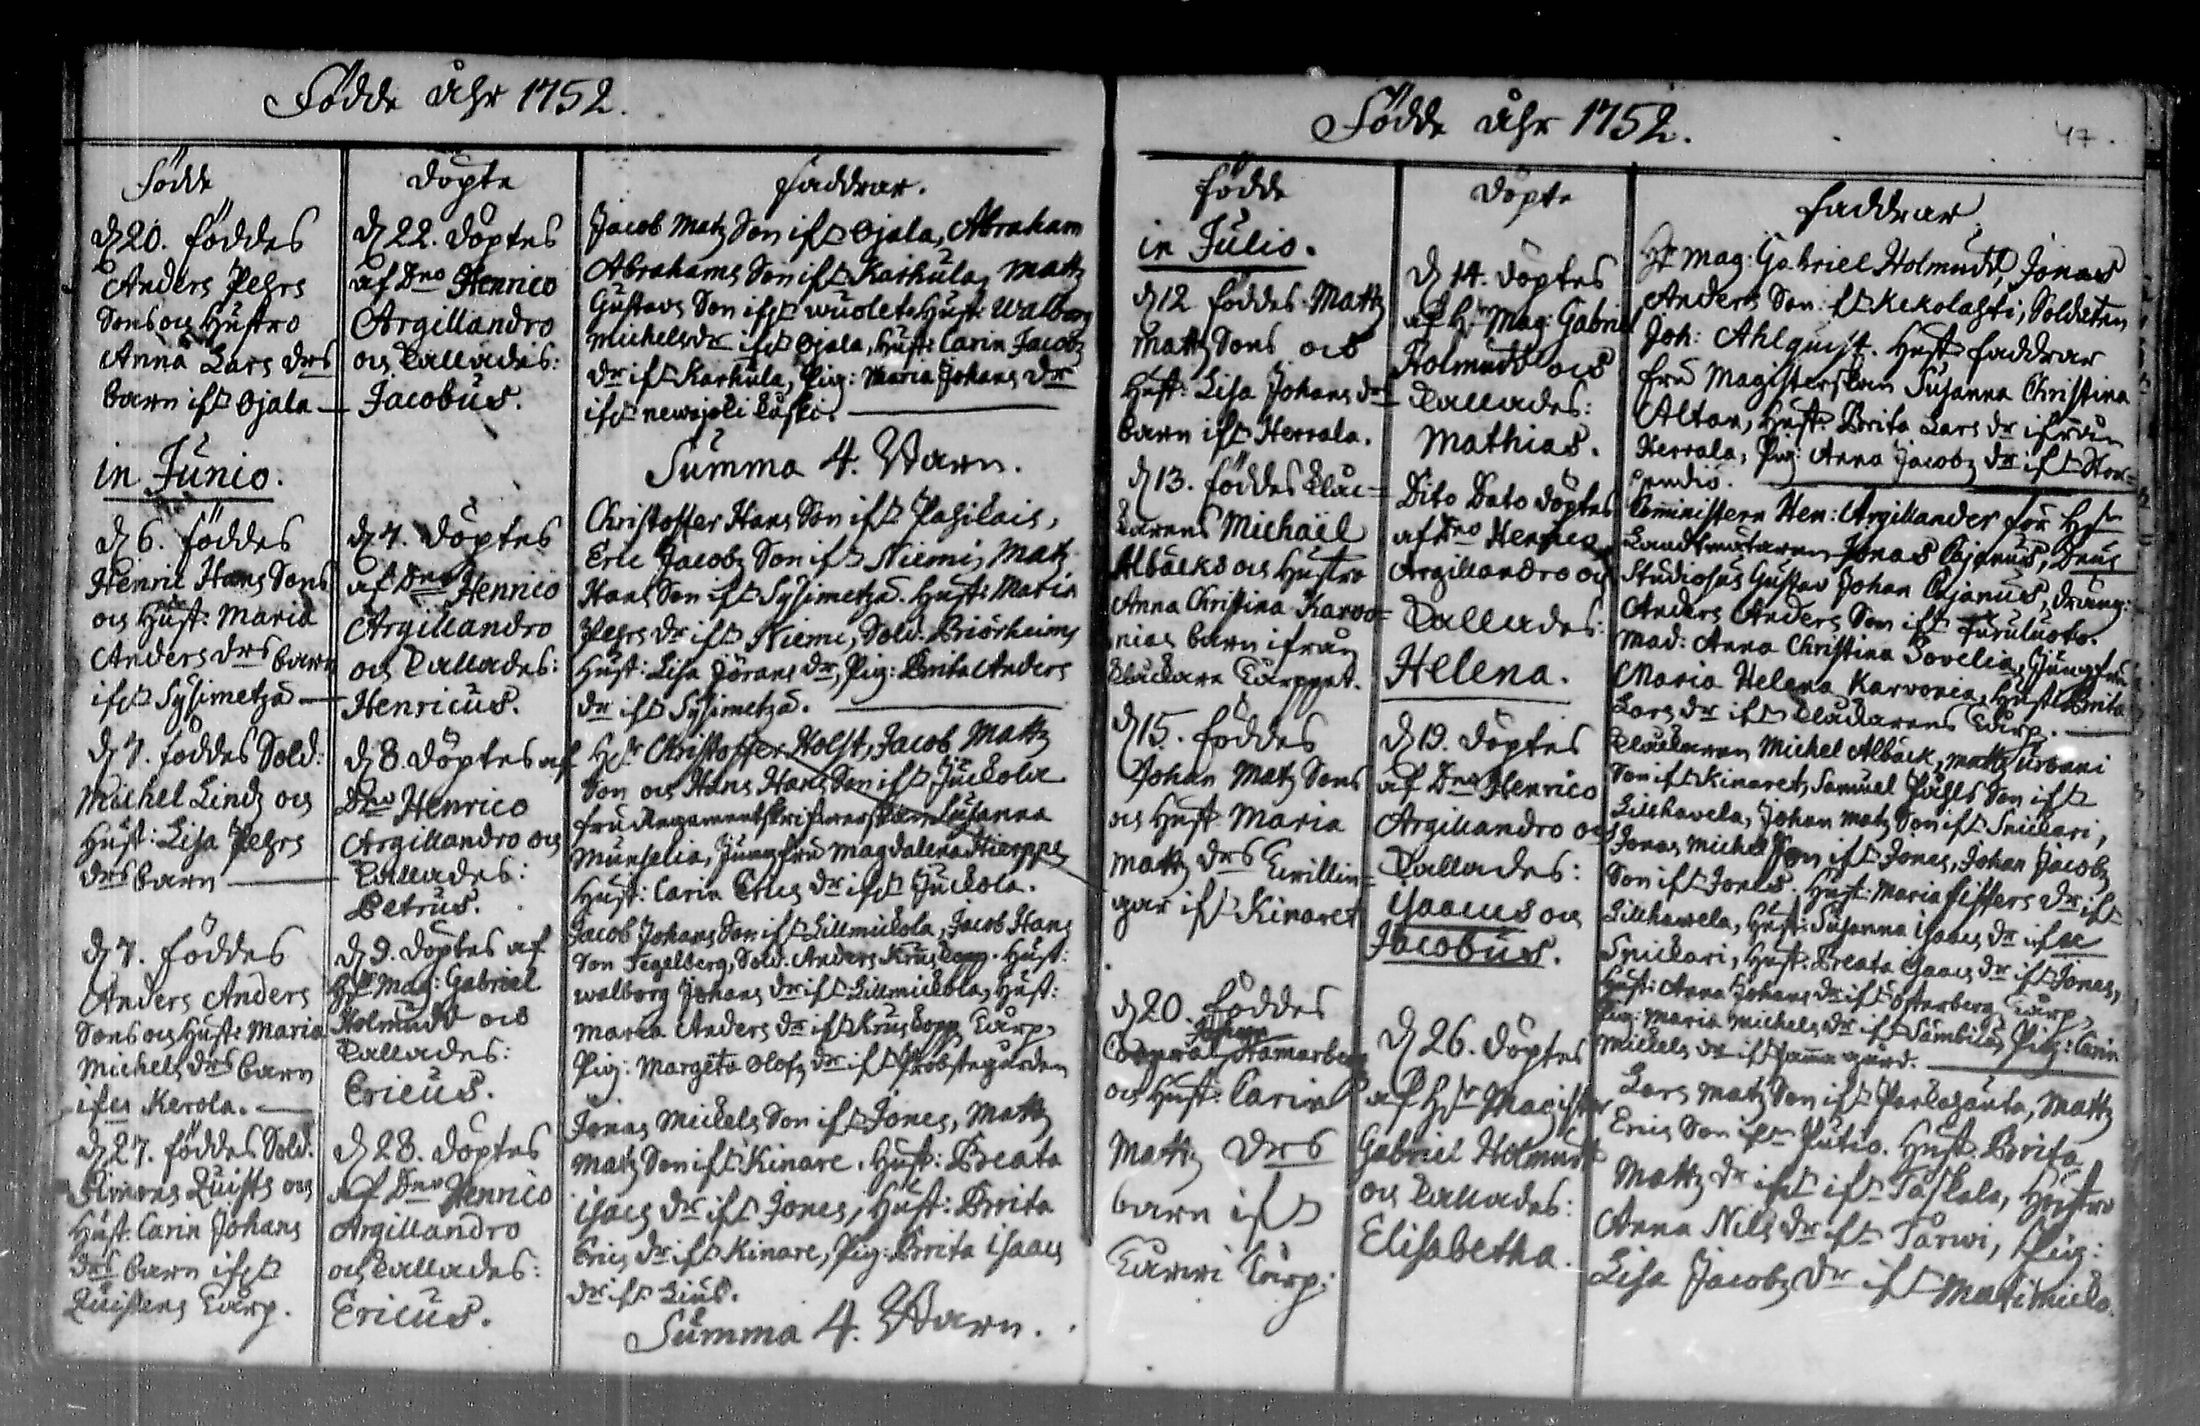 Födde åhr 1752.
Födde
d 20. föddes
Anders Pehrs
Sons och Hustro
Anna Lars drs
barn ifr Ojala
in Junio:
d 6. föddes
Henric Hans Sons
och Hust: Maria
Anders drs barn
ifr Sysimetzä
d 7. föddes Sold:
Michel Lindz och
Hust: Lisa Pehrs
drs barn
d 7. föddes
Anders Anders
Sons och Hust: Maria
Michels drs barn
ifrå Kerola.
d 27. föddes Sold:
Simons Quists och
Hust: Carin Johans
drs barn ifr
Quistens torp.
döpte
d 22. döptes
af Dno Henrico
Argillandro
och kallades:
Jacobus.
d 7. döptes
af Dno Henrico
Argillandro
och kallades:
Henricus.
d 8. döptes af
Dno Henrico
Argillandro och
kallades:
Petrus.
d 9. döptes af
Hr Mag: Gabriel
Holmudd och
kallades:
Ericus.
d 28. döptes
af Dno Henrico
Argillandro
och kallades:
Ericus.
faddrar.
Jacob Matz Son ifr Ojala, Abraham
Abrahams Son ifr Karhula, Mattz
Gustavs Son ifr Wuolet. Hust: Walborg
Michelsdr ifr Ojala, Hust: Carin Jacobz
dr ifr Karhula, Pig: Maria Johans dr
ifr newajoki
Summa 4. Barn.
Christoffer Hans Son ifr Pasikais,
Eric Jacobz Son ifr Niemi, Matz
Hans Son ifr Sysimetzä. Hust: Maria
Pehrs dr ifr Niemi, Sold. Biörheims
Hust: Lisa Jörans dr, Pig: Brita Anders
dr ifr Sysimetzä.
Hr Christoffer Holst, Jacob Mattz
Son och Hans Hans Son ifr Juckola
fru Regementskrifwerskan Susanna
Munselia, Jungfru Magdalena Hierppe,
Hust: Carin Erics dr ifr Juckola.
Jacob Johans Son ifr Lillmickola, Jacob Hans
Son Tegelberg, Sold: Anders Kruskopp. Hust:
Walborg Johans dr ifr Lillmickola, Hust:
Maria Anders dr ifr Kruskopps torp,
Pig: Margeta Olofz dr ifr Probstegården
Jonas Mickels Son ifr Jones, Mattz
Matz Son ifr Kinare. Hust: Beata
Isacs dr ifr Jones, Hust: Brita
Erics dr ifr Kinare, Pig: Brita Isaacs
dr ifr Lius.
Summa 4. Barn.
Födde åhr 1752.
47.
födde
in Julio.
d 12 föddes Mattz
Mattz Sons och
Hust: Lisa Johans dr
barn ifr Herrala.
d 13. föddes kläc-
karens Michaël
Albäcks och Hustro
Anna Christina Karvo-
nias barn ifrån
kläckare torppet.
d 15. föddes
Johan Matz Sons
och Hust: Maria
Mattz drs twillin-
gar ifr Kinaret
d 20. föddes
Hamarberg
och Hust: Carin
Mattz drs
barn ifr
Tarvi torp:
döpte
d 14. döptes
af Hr Mag: Gabriel
Holmudd och
kallades:
Mathias.
Dito Dato döptes
af Dno Henrico
Argillandro och
kallades:
Helena.
d 19. döptes
af Dno Henrico
Argillandro och
kallades:
Isaacus och
Jacobus.
d 26. döptes
af Hr Magister
Gabriel Holmudd
och kallades:
Elisabetha.
faddrar
Hr Mag: Gabriel Holmudd, Jonas
Anders Son ifr Kekolahti, Soldaten
Joh: Ahlquist. Hust: faddrar
fru Magisterskan Susanna Christina
Altan, Hust: Brita Lars dr ifrån
Herrala, Pig: Anna Jacobz dr ifr
Comministern Hen: Argillander för Hr
Landtmätaren Jonas Cajanus, Dnus
Studiosus Gustav Johan Cajanus, dräng:
Anders Anders Son ifr Furuluoto.
Mad: Anna Christina Sovelia, Jungfru
Maria Helena Karvonia, Hust: Brita
Lars dr ifr kläckarens torp.
Kläckaren Michel Albäck, Mattz Urbani
Son ifr Kinaret, Samuel Påhls Son ifr
Lillhavela, Johan Matz Son ifr Snickari,
Jonas Michel Son ifr Jones, Johan Jacobz
Son ifr Jones. Hust: Maria dr ifr
Lillhawela, Hust: Susanna Isaacs dr ifr
Snickari, Hust: Beata Isaacs dr ifr Jones,
Hust: Anna Johans dr ifr Österbergs torp,
Pig: Maria Michels dr ifr Sambila, Pig: Carin
Mickels dr ifr gård.
Lars Matz Son ifr, Mattz
Erics Son ifr Putio. Hust: Brita
Mattz dr ifr ifr Taskala, Hustro
Anna Nils dr ifr Tarwi, Pig:
Lisa Jacobz dr ifr